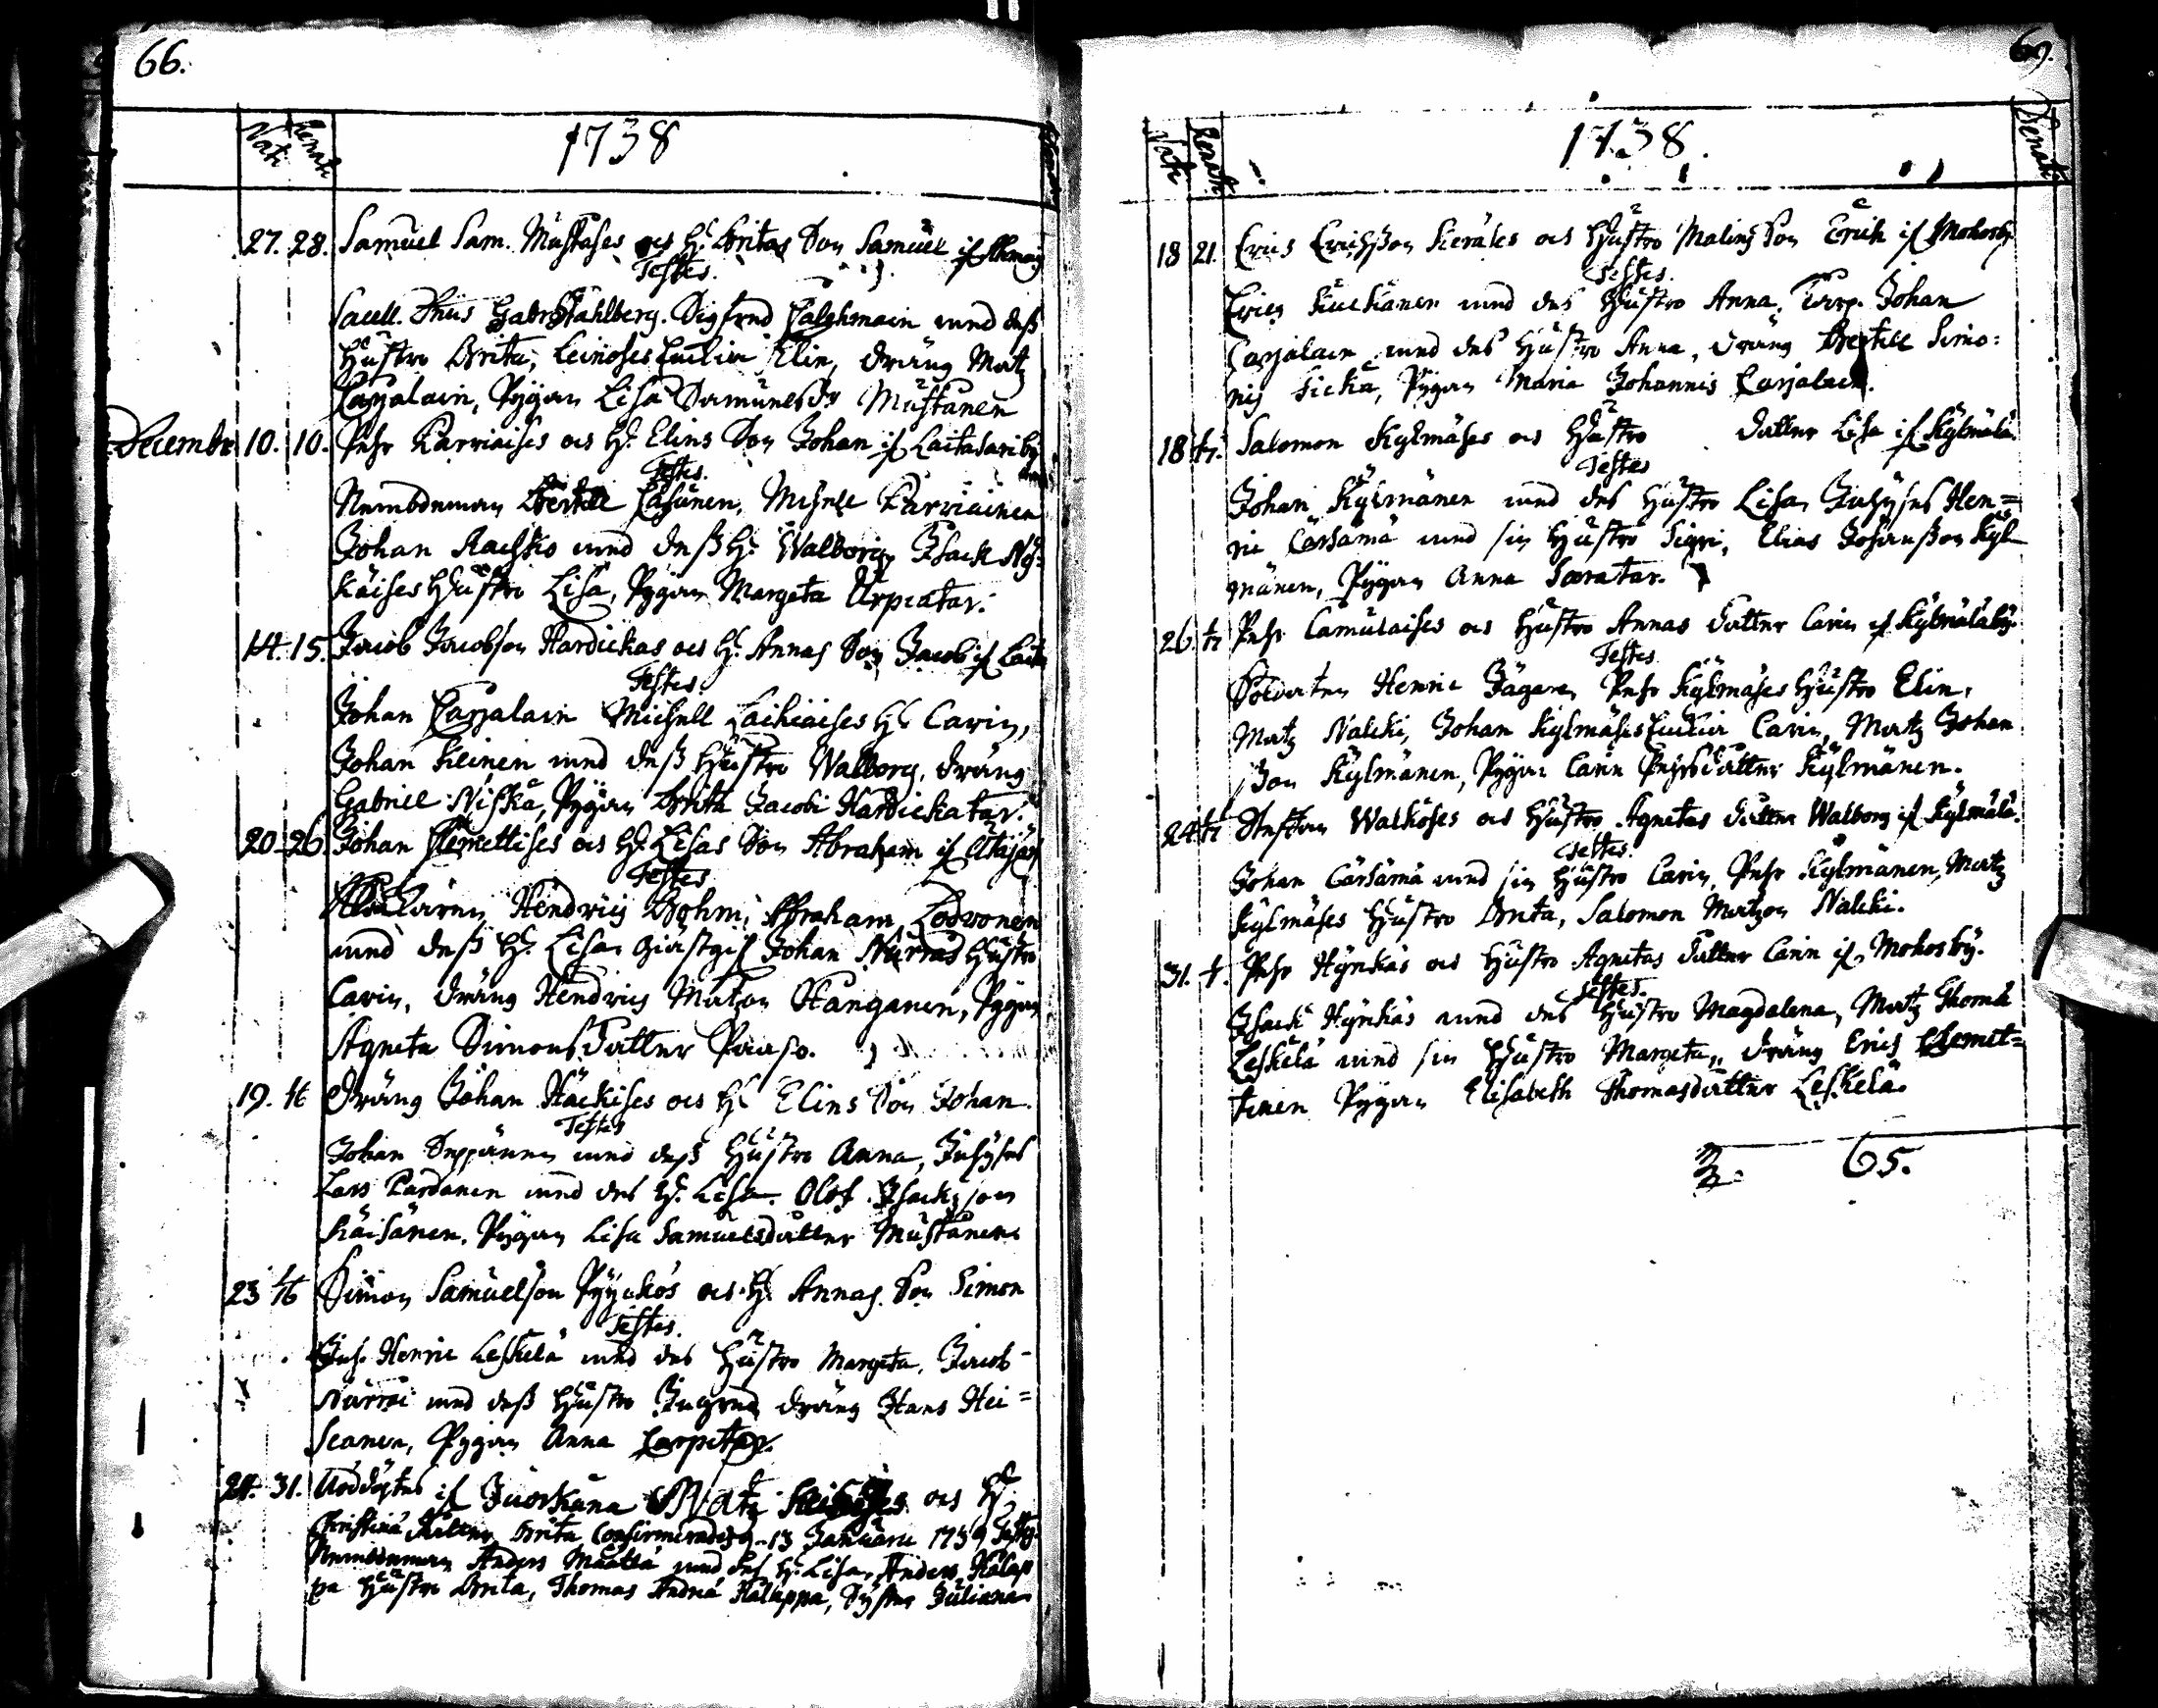 66.
Nati Renati 1738
27. 28. Samuel Sam. Mustases och H. Britas Son Samuel if
Testes.
Sacell. Dnus Gabr Stahlberg. Sigfred Calchmain med dess
Hustru Brita, Leinoses Enckia Elin, dräng Matz
Carjalain, Pigan Lisa Samuelsdr Mustanen
Decembr 10. 10. Pehr Karriaises och H. Elins Son Johan if Laitasariby
Testes.
Nembdeman Bertill Casunen, Michell Karriainen
Johan Rachko med dess H. Walborg, Isack Ny=
käises Hustru Lisa, Pigan Margeta Urpiatar.
14. 15. Jacob Jacobson Hardickas och H. Annas Son Jacob if Laita
Testes
Johan Carjalain Michell Laihiaises H. Carin,
Johan Keinen med dess Hustru Walborg, dräng
Gabriel Niska, Pigan Brita Jacobi Hardickatar.
20. 26. Johan Clemettises och H. Lisas Son Abraham if Utajärf
Testes
Klockaren Hendrich Bohm, Abraham Lodvonen
med dess H. Lisa, Giästgif Johan Nurras Hustru
Carin, dräng Hendrich Matzon Hanganen, Pigan
Agneta Simonsdatter Paaso.
19. 26 Dräng Johan Häckises och H. Elins Son Johan.
Testes
Johan Seppänen med dess Hustru Anna, Inhyses
Lars Pardanen med des H. Lisa. Olof Isackson
Käisänen. Pigan Lisa Samuelsdatter Mustanen
23 26 Simon Samuelson Pyykös och H. Annas Son Simon
Testes.
Inh. Henric Leskelä med des Hustru Margeta, Jacob
Nurrai med dess Hustru Ingred dräng Hans Hei=
Scanen, Pigan Anna Carpetar.
24. 31. Nöddöptes if Juorkuna Matz och H.
Christina Datter Brita Confirmerades d. 13 Januarii 1739 Test.
Nembdeman Anders Määttä med des H. Lisa, Anders Kalap
pa Hustru Brita, Thomas Andreä Kalappa, Syster Juliana
69.
Nati Renati 1738. Denati
18 21. Erics Ericsson Keräles och Hustru Malins Son Erich if Mohosby
Testes.
Erich Kuckanen med des Hustru Anna, Corp. Johan
Carjalain med des Hustru Anna, dräng Bertill Simo:
nis Sicka, Pigan Maria Johannis Carjalain.
18 Salomon Kylmäses och Hustru Datter Lisa if Kylmälä
Testes
Johan Kylmänen med des Hustru Lisa, Inhyses Hen=
ric Cärsämä med sin Hustru Sigri, Elias Johansson Kyl
mänen, Pigan Anna Saratar.
26. Pehr Camulaises och Hustru Annas Datter Carin if Kylmäläby
Testes
Soldaten Henric Jägare, Pehr Kylmäses Hustru Elin,
Matz Naleki, Johan Kylmäses Enckia Carin, Matz Johan
son Kylmänen, Pigan Carin Pehrsdatter Kylmänen.
24 Steffan Walkoses och Hustru Agnetas Datter Walborg if Kylmälä.
Testes.
Johan Cärsämä med sin Hustru Carin, Pehr Kylmänen, Matz
Kylmäses Hustru Brita, Salomon Matzon Naleki.
31. Pehr Hyrckäs och Hustru Agnetas Datter Carin if Mohosby.
Testes.
Isack Hyrckäs med des Hustru Magdalena, Matz Thomä
Leskelä med sin Hustru Margeta, dräng Erich Clemet=
tinen Pigan Elisabeth Thomasdatter Leskelä.
65.